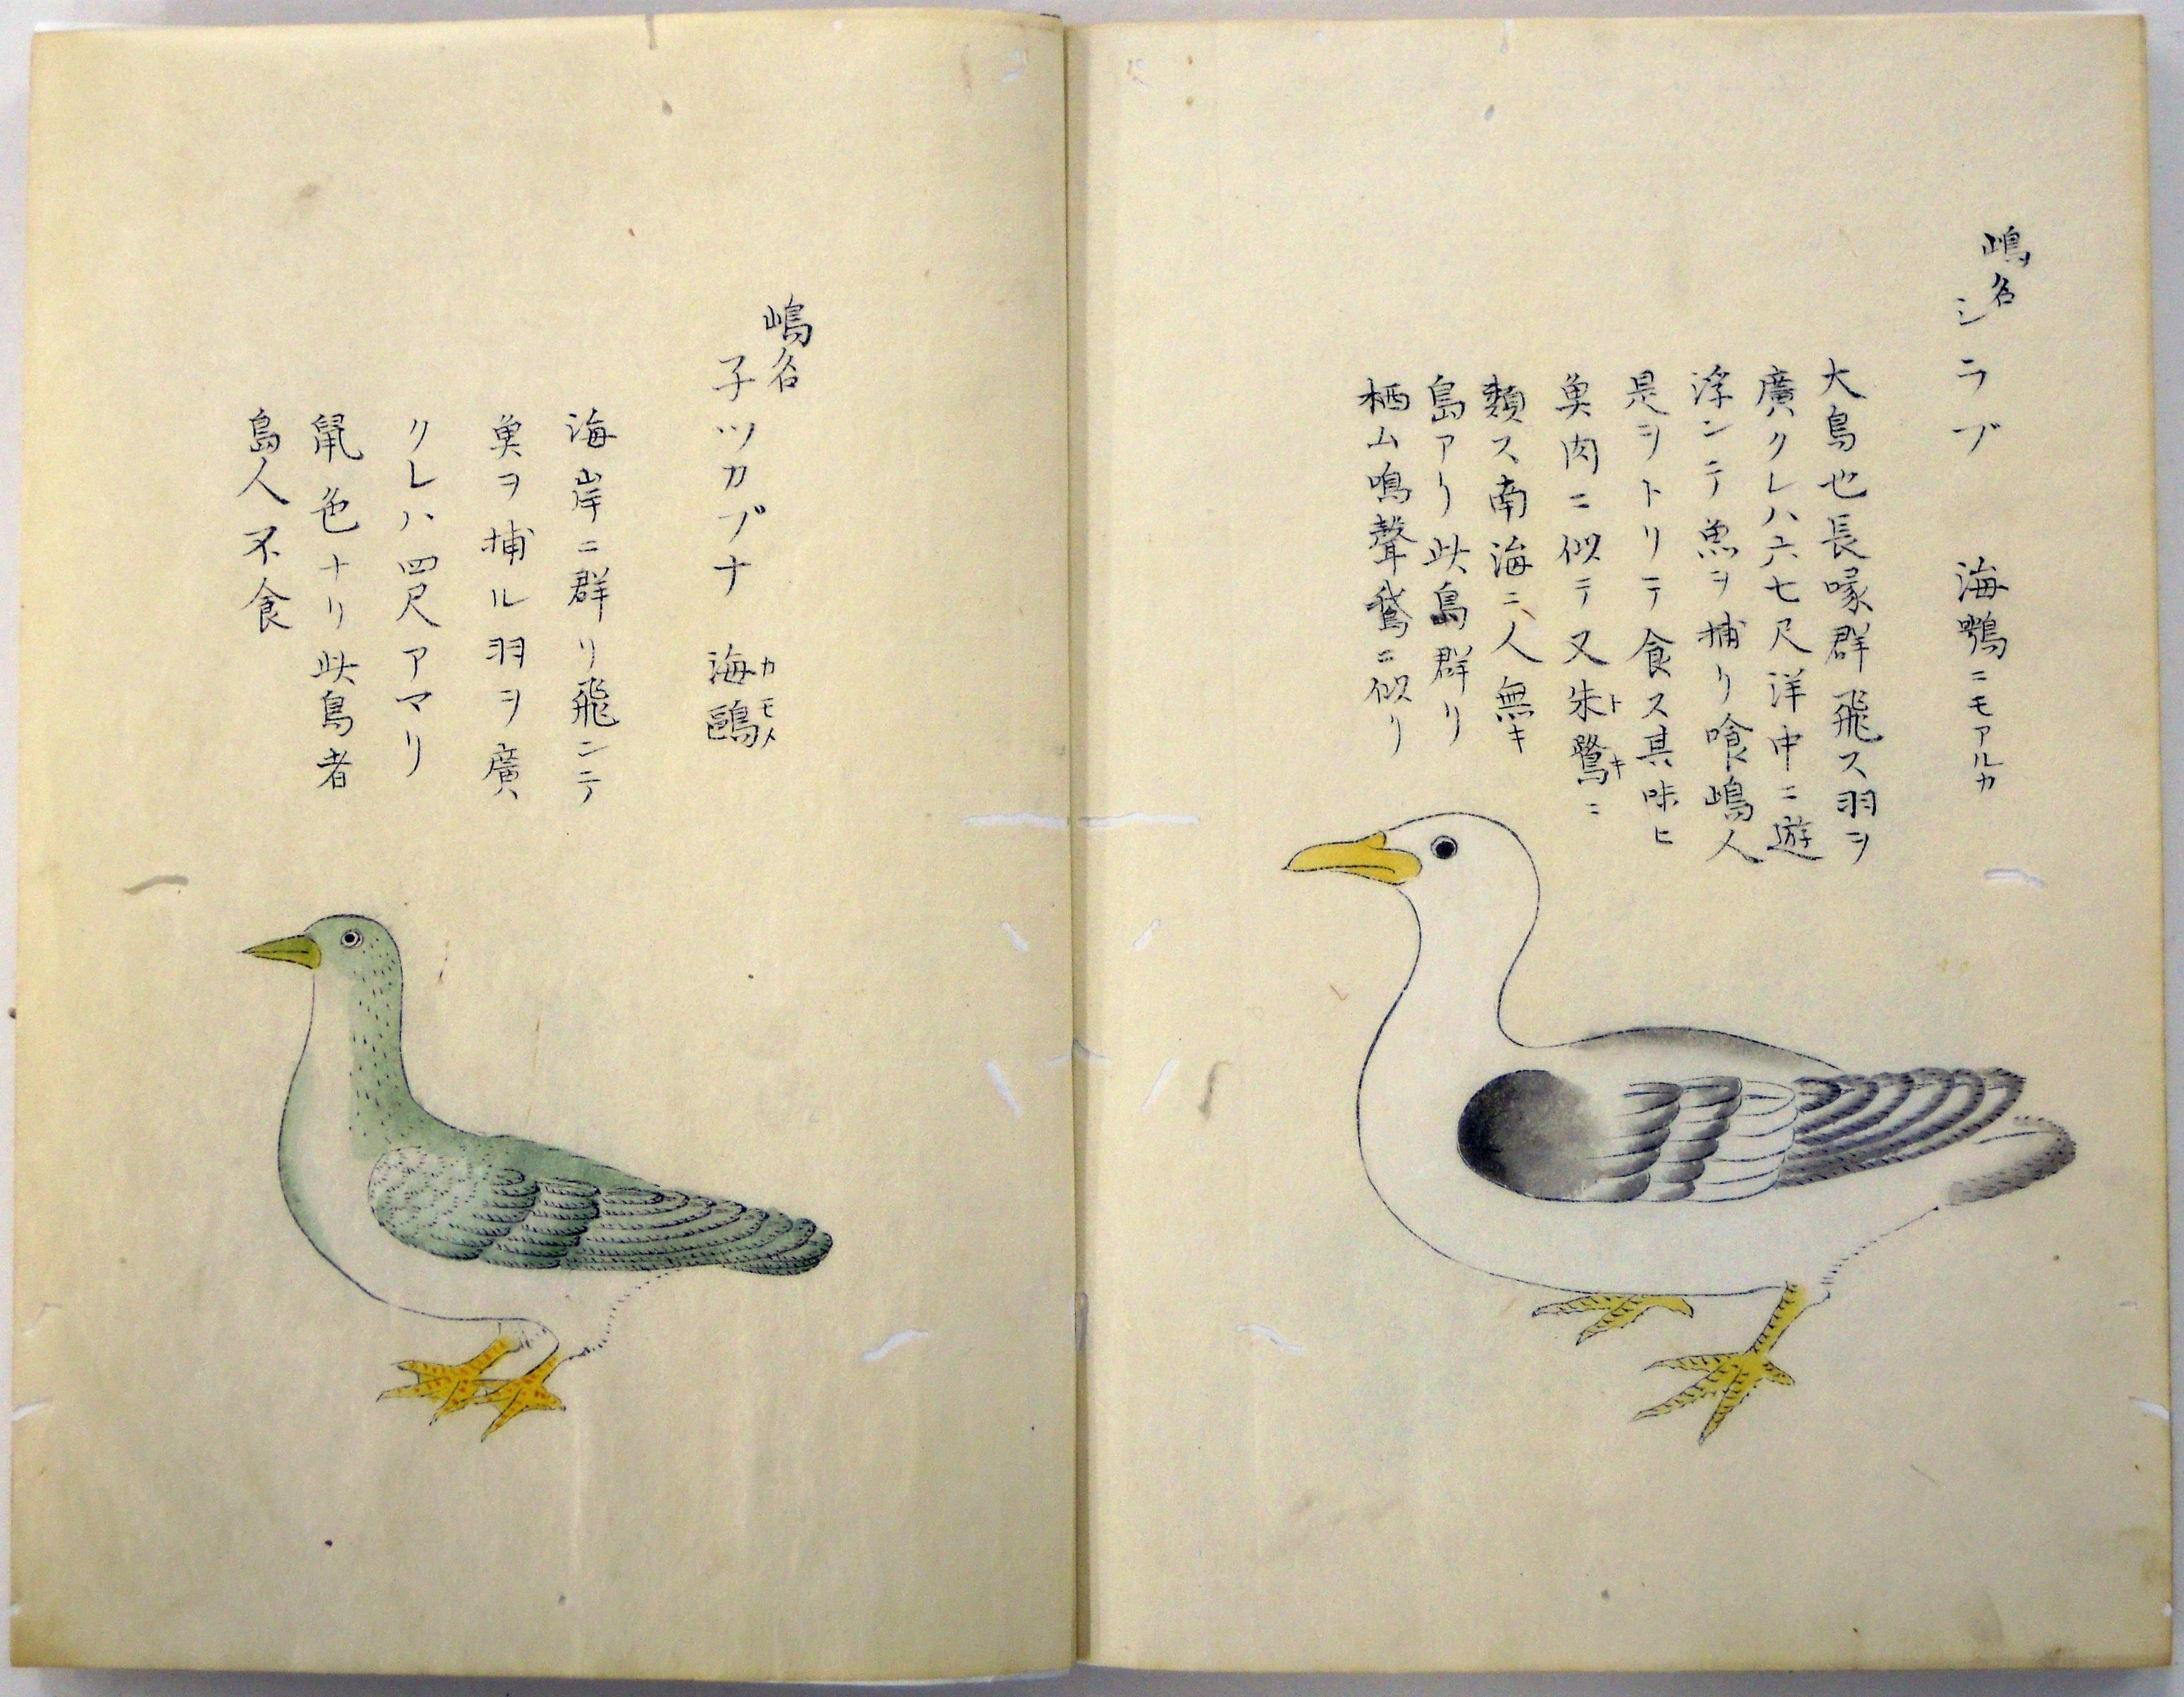 嶋名
シラブ　海鶚ニモアルカ
大鳥也長喙群飛ス羽ヲ
廣クレハ六七尺洋中ニ遊
浮ンテ魚ヲ捕リ喰嶋人
是ヲトリテ食ス其味ヒ
魚肉ニ似テ又朱鷺ニ
トキ
類ス南海ニ人無キ
島アリ此鳥群リ
栖ム鳴聲鵞ニ似リ
嶋名
子ツカブナ　海鷗
カモメ
海岸ニ群リ飛ンテ
魚ヲ捕ル羽ヲ廣
クレハ四尺アマリ
鼠色ナリ此鳥者
島人不食